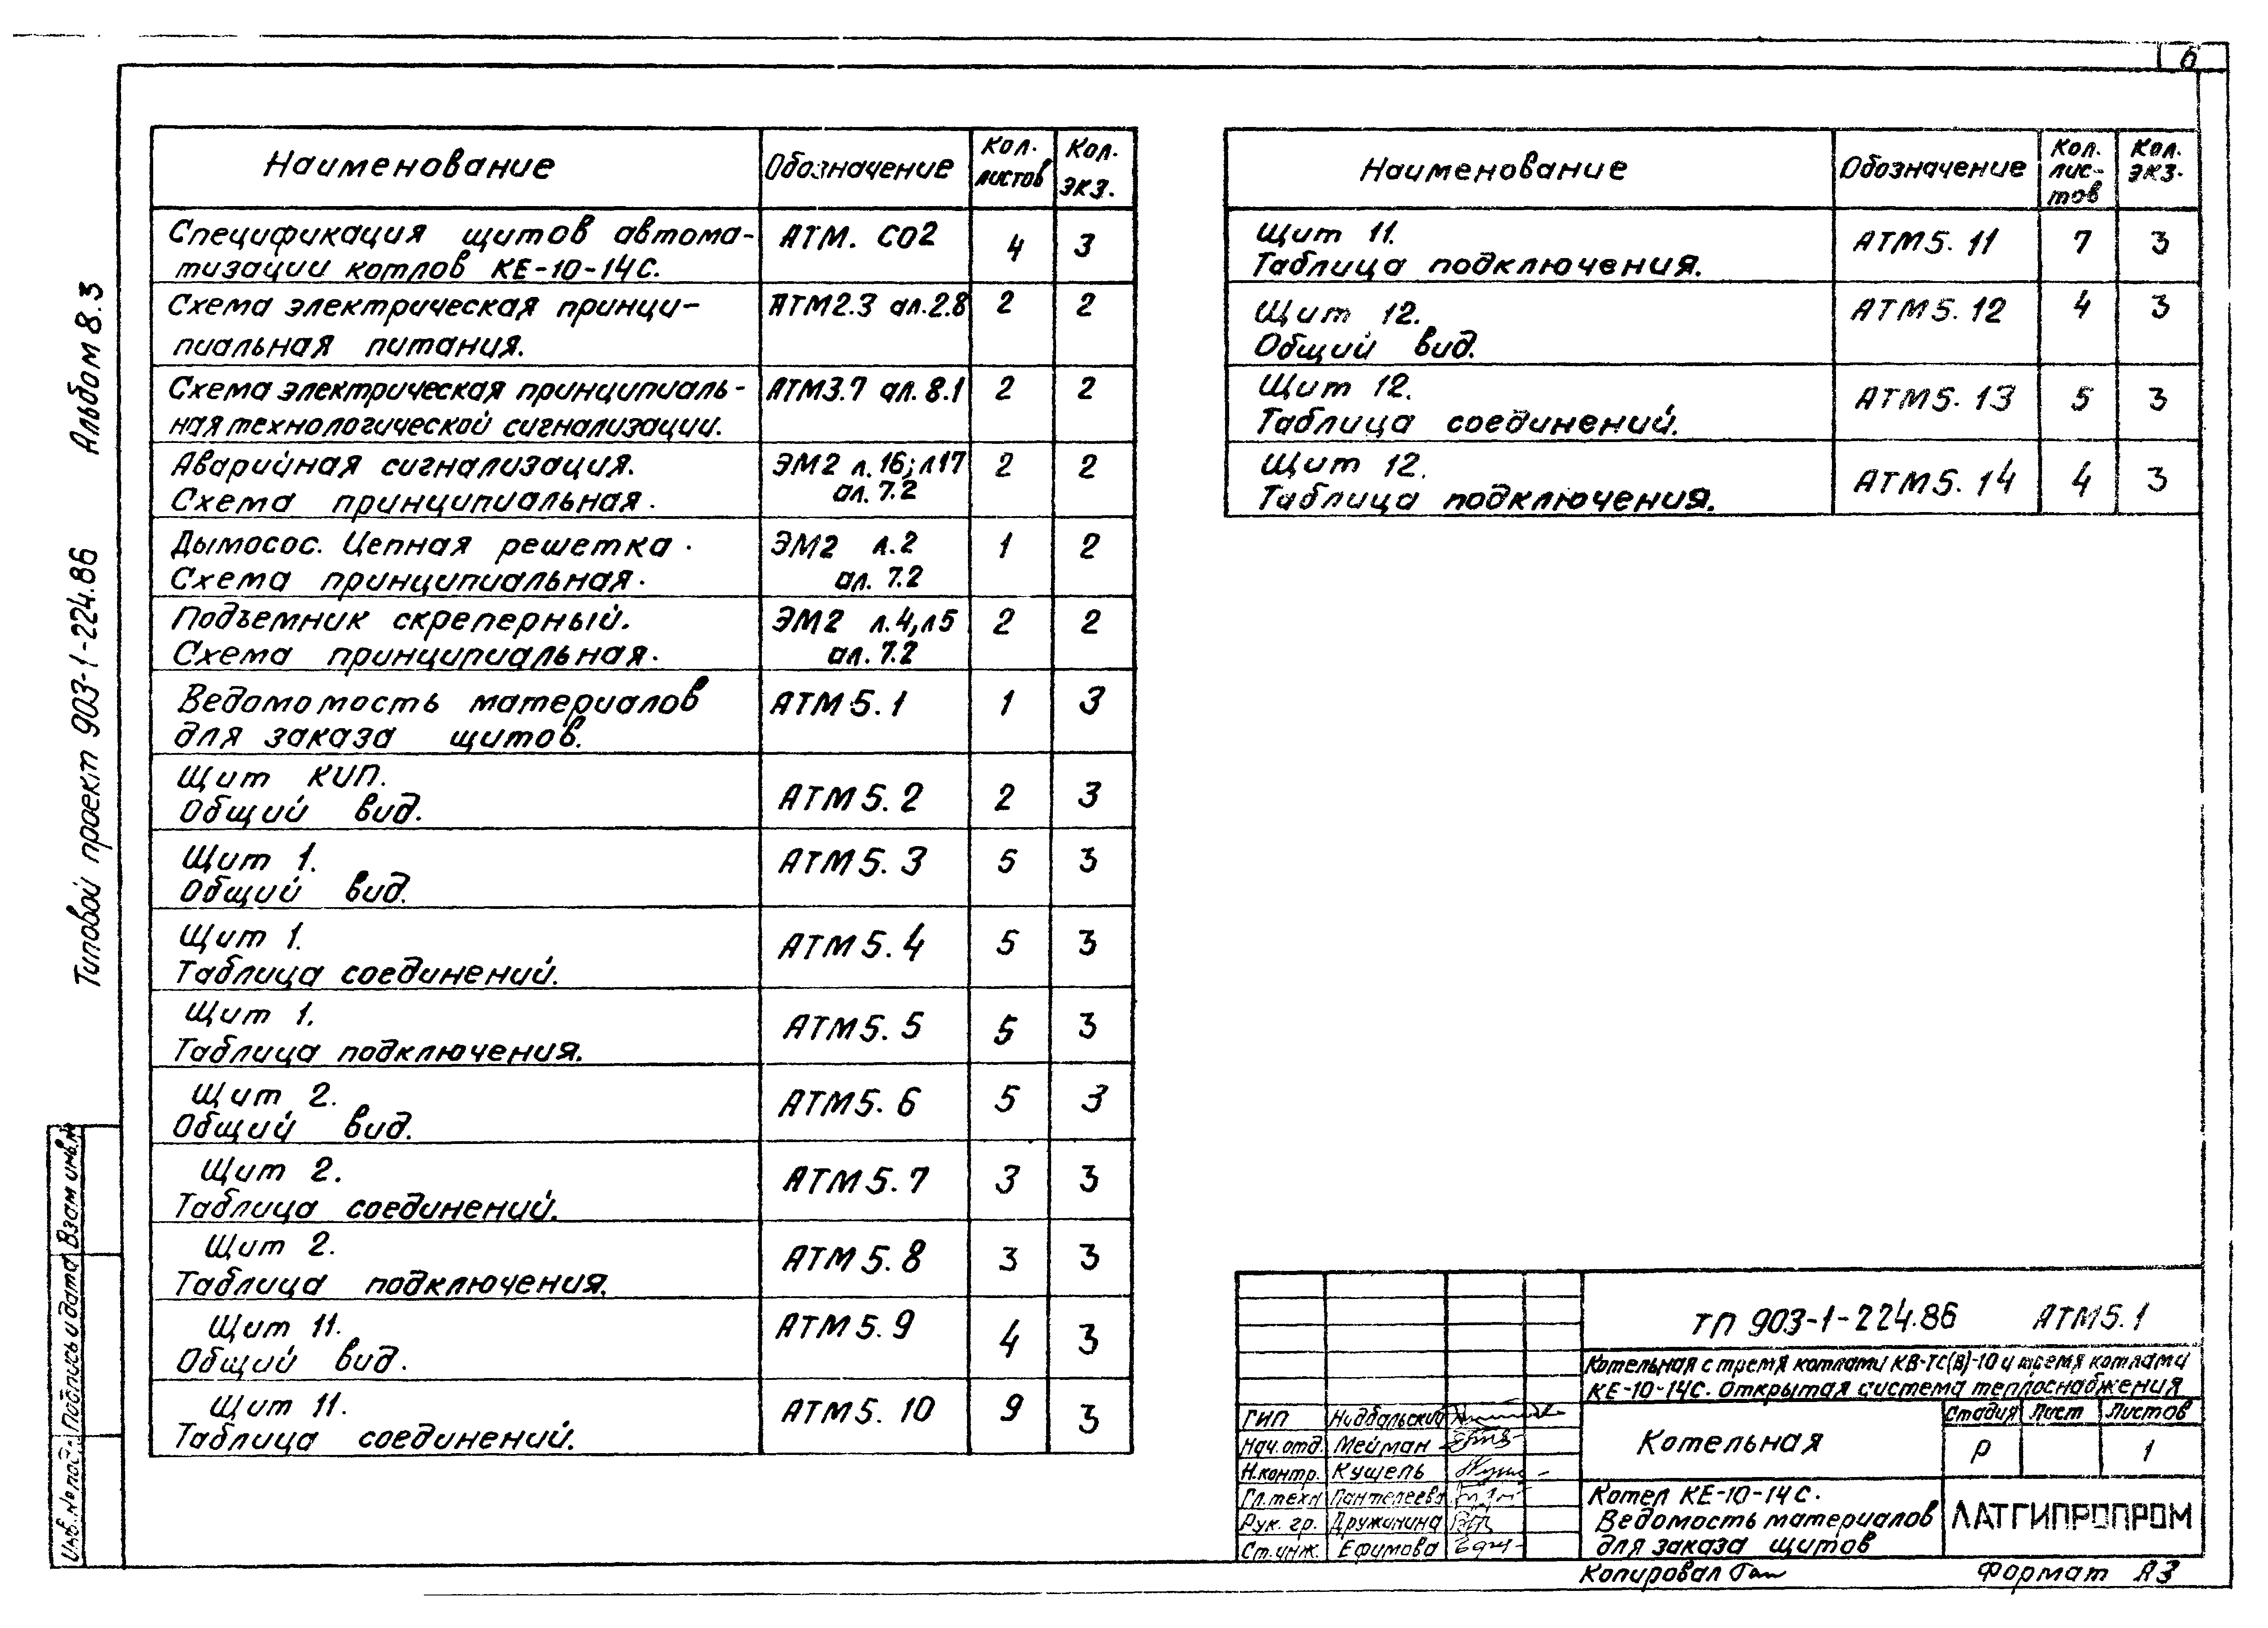 6
Альбом 8.3
Типовой проект 903-1-224.86
Наименование Обозначение Кол. листов Кол. экз.
Спецификация щитов автома- АТМ. СО2 4 3
тизации котлов КЕ-10-14С.
Схема электрическая принци- АТМ2.3 ал.2.8 2 2
пиальная питания.
Схема электрическая принципиаль- АТМ3.7 ал. 8.1 2 2
ная технологической сигнализации.
Аварийная сигнализация. ЭМ2 л.16; л17 2 2
Схема принципиальная. ал. 7.2
Дымосос. Цепная решетка. ЭМ2 л.2 1 2
Схема принципиальная. ал. 7.2
Подъемник скреперный. ЭМ2 л.4, л5 2 2
Схема принципиальная. ал. 7.2
Ведомость материалов АТМ5.1 1 3
для заказа щитов.
Щит КИП. АТМ5.2 2 3
Общий вид.
Щит 1. АТМ5.3 5 3
Общий вид.
Щит 1. АТМ5.4 5 3
Таблица соединений.
Щит 1. АТМ5.5 5 3
Таблица подключения.
Щит 2. АТМ5.6 5 3
Общий вид.
Щит 2. АТМ5.7 3 3
Таблица соединений.
Щит 2. АТМ5.8 3 3
Таблица подключения.
Щит 11. АТМ5.9 4 3
Общий вид.
Щит 11. АТМ5.10 9 3
Таблица соединений.
Наименование Обозначение Кол. лис- тов Кол. экз.
Щит 11. АТМ5.11 7 3
Таблица подключения.
Щит 12. АТМ5.12 4 3
Общий вид.
Щит 12. АТМ5.13 5 3
Таблица соединений.
Щит 12. АТМ5.14 4 3
Таблица подключения.
ТП 903-1-224.86 АТМ5.1
Котельная с тремя котлами КВ-ТС(В)-10 и тремя котлами
КЕ-10-14С. Открытая система теплоснабжения
ГИП Нидбальский
Нач.отд. Мейман
Н.контр. Кущель
Гл.техн Пантелеева
Рук. гр. Дружинина
Ст.инж. Ефимова
Котельная
Стадия Лист Листов
Р 1
Котел КЕ-10-14С.
Ведомость материалов
для заказа щитов
ЛАТГИПРОПРОМ
Копировал Формат А3
Инв. № подл. Подпись и дата Взам инв.№